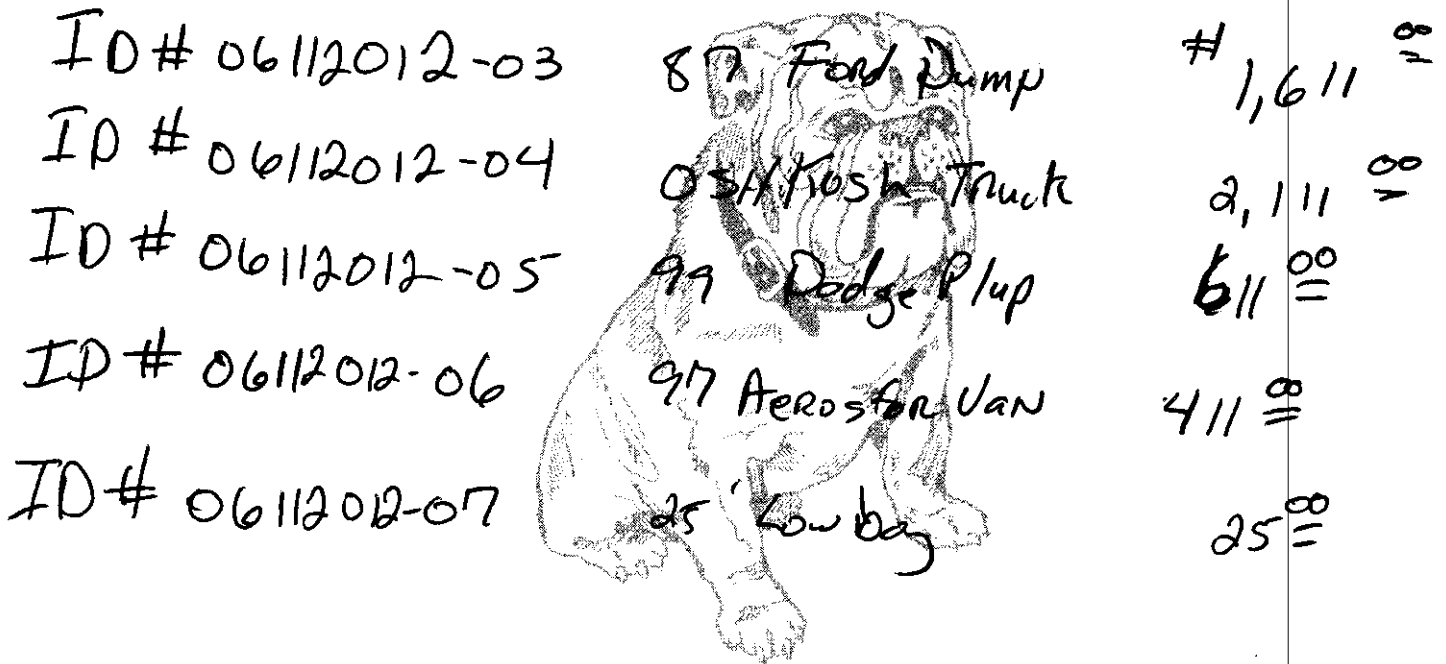 ID # 06112012-03 87 Ford Dump # 1,611 00
ID # 06112012-04 OSHKosh Truck 2,111 00
ID # 06112012-05 99 Dodge P/up 611 00
ID # 06112012-06 97 Aerostar Van 411 00
ID # 06112012-07 25' Low bay 25 00